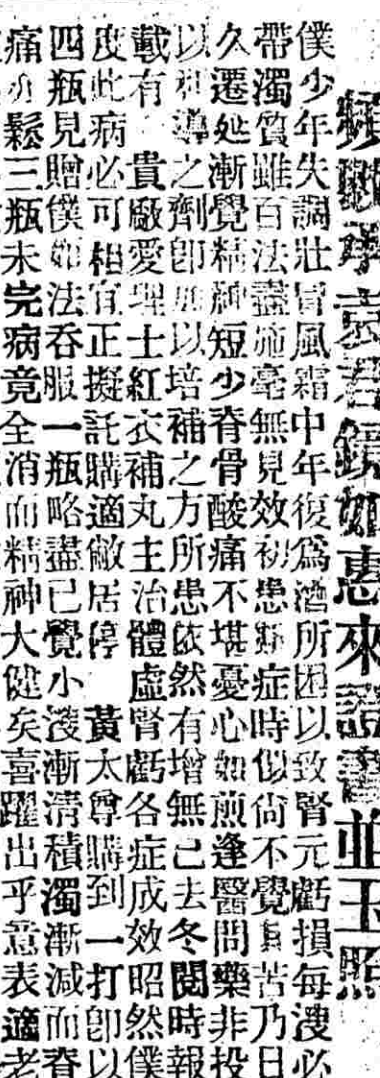 袁君鏡如惠來證書並玉照
僕少年失調壯冒風霜中年復為酒所困以致腎元虧損每溲必
帶濁質雖百法盡施毫無見效初患斯症時似尚不覺其苦乃日
久遷延漸覺精神短少脊骨酸痛不堪憂心如煎逢醫問藥非投
以利導之劑卽加以培補之方所患依然有增無已去冬閱時報
載有 貴廠愛理士紅衣補丸主治體虛腎虧各症成效昭然僕
度此病必可相宜正擬託購適敝居停 黃太尊購到一打卽以
四瓶見贈僕如法吞服一瓶略盡已覺小溲漸清積濁漸減而脊
痛亦鬆三瓶未完病竟全消而精神大健矣喜躍出乎意表適老